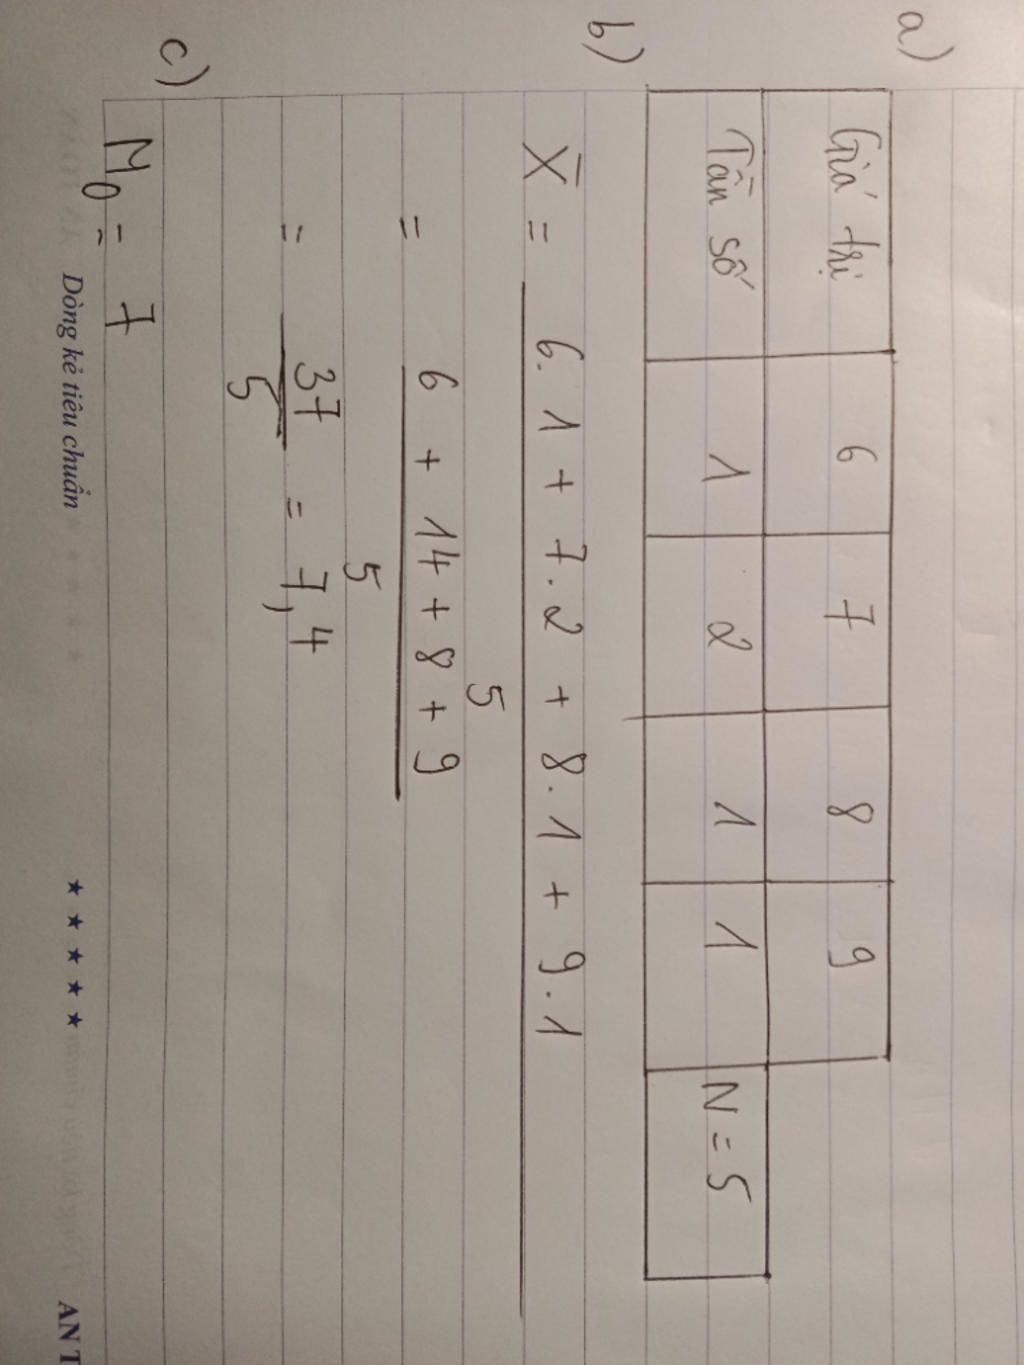 a)
Giá trị 6 7 8 9
Tần số 1 2 1 1 N = 5
b)
X̄ = 6. 1 + 7. 2 + 8. 1 + 9. 1
5
= 6 + 14 + 8 + 9
5
= 37 = 7,4
5
c)
M0 = 7
Dòng kẻ tiêu chuẩn ★ ★ ★ ★ ★ AN T